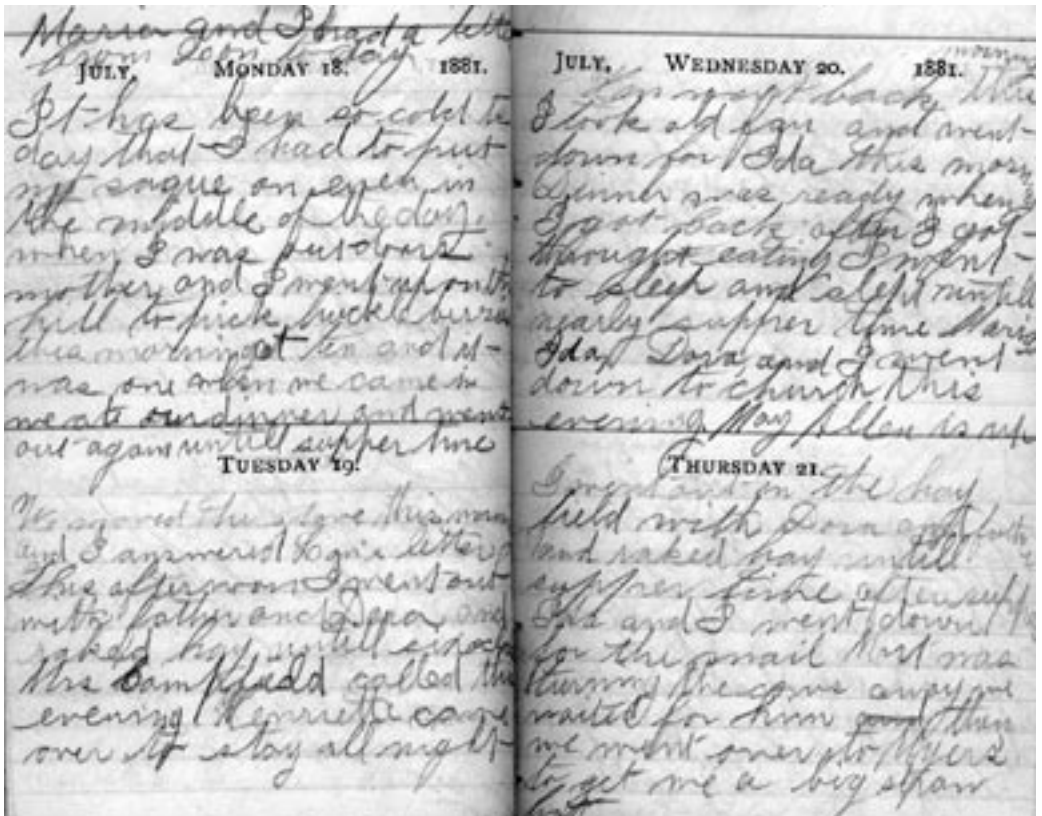 Marion and I had a lette
from Leon today
JULY, MONDAY 18. 1881.
It has been so cold to
day that I had to put
my saque on even in
the middle of the day
when I was out doors
mother and I went up on th
hill to pick huckleburies
this morning at ten and it
was one when we came in
we ate our dinner and went
out again untill supper time
TUESDAY 19.
We moved the stove this morn
and I answered Leon's letter
This afternoon I went out
with father and Dora and
raked hay untill six ock
Mrs Campfield called this
evening Henrietta came
over to stay all night
JULY, WEDNESDAY 20. 1881.
morning
went back this
I took old fan and went
down for Ida this morn
Dinner was ready when
I got back after I got
throught eating I went
to sleep and slept untill
nearly supper time Marion
Ida Dora and I went
down to church this
evening May Allen is up
THURSDAY 21.
I went out in the hay
field with Dora and father
and raked hay untill
supper time after supp
Ida and I went down
for the mail Mort was
turning the cows away we
waited for him and then
we went over to Myers
to get me a big straw
hat